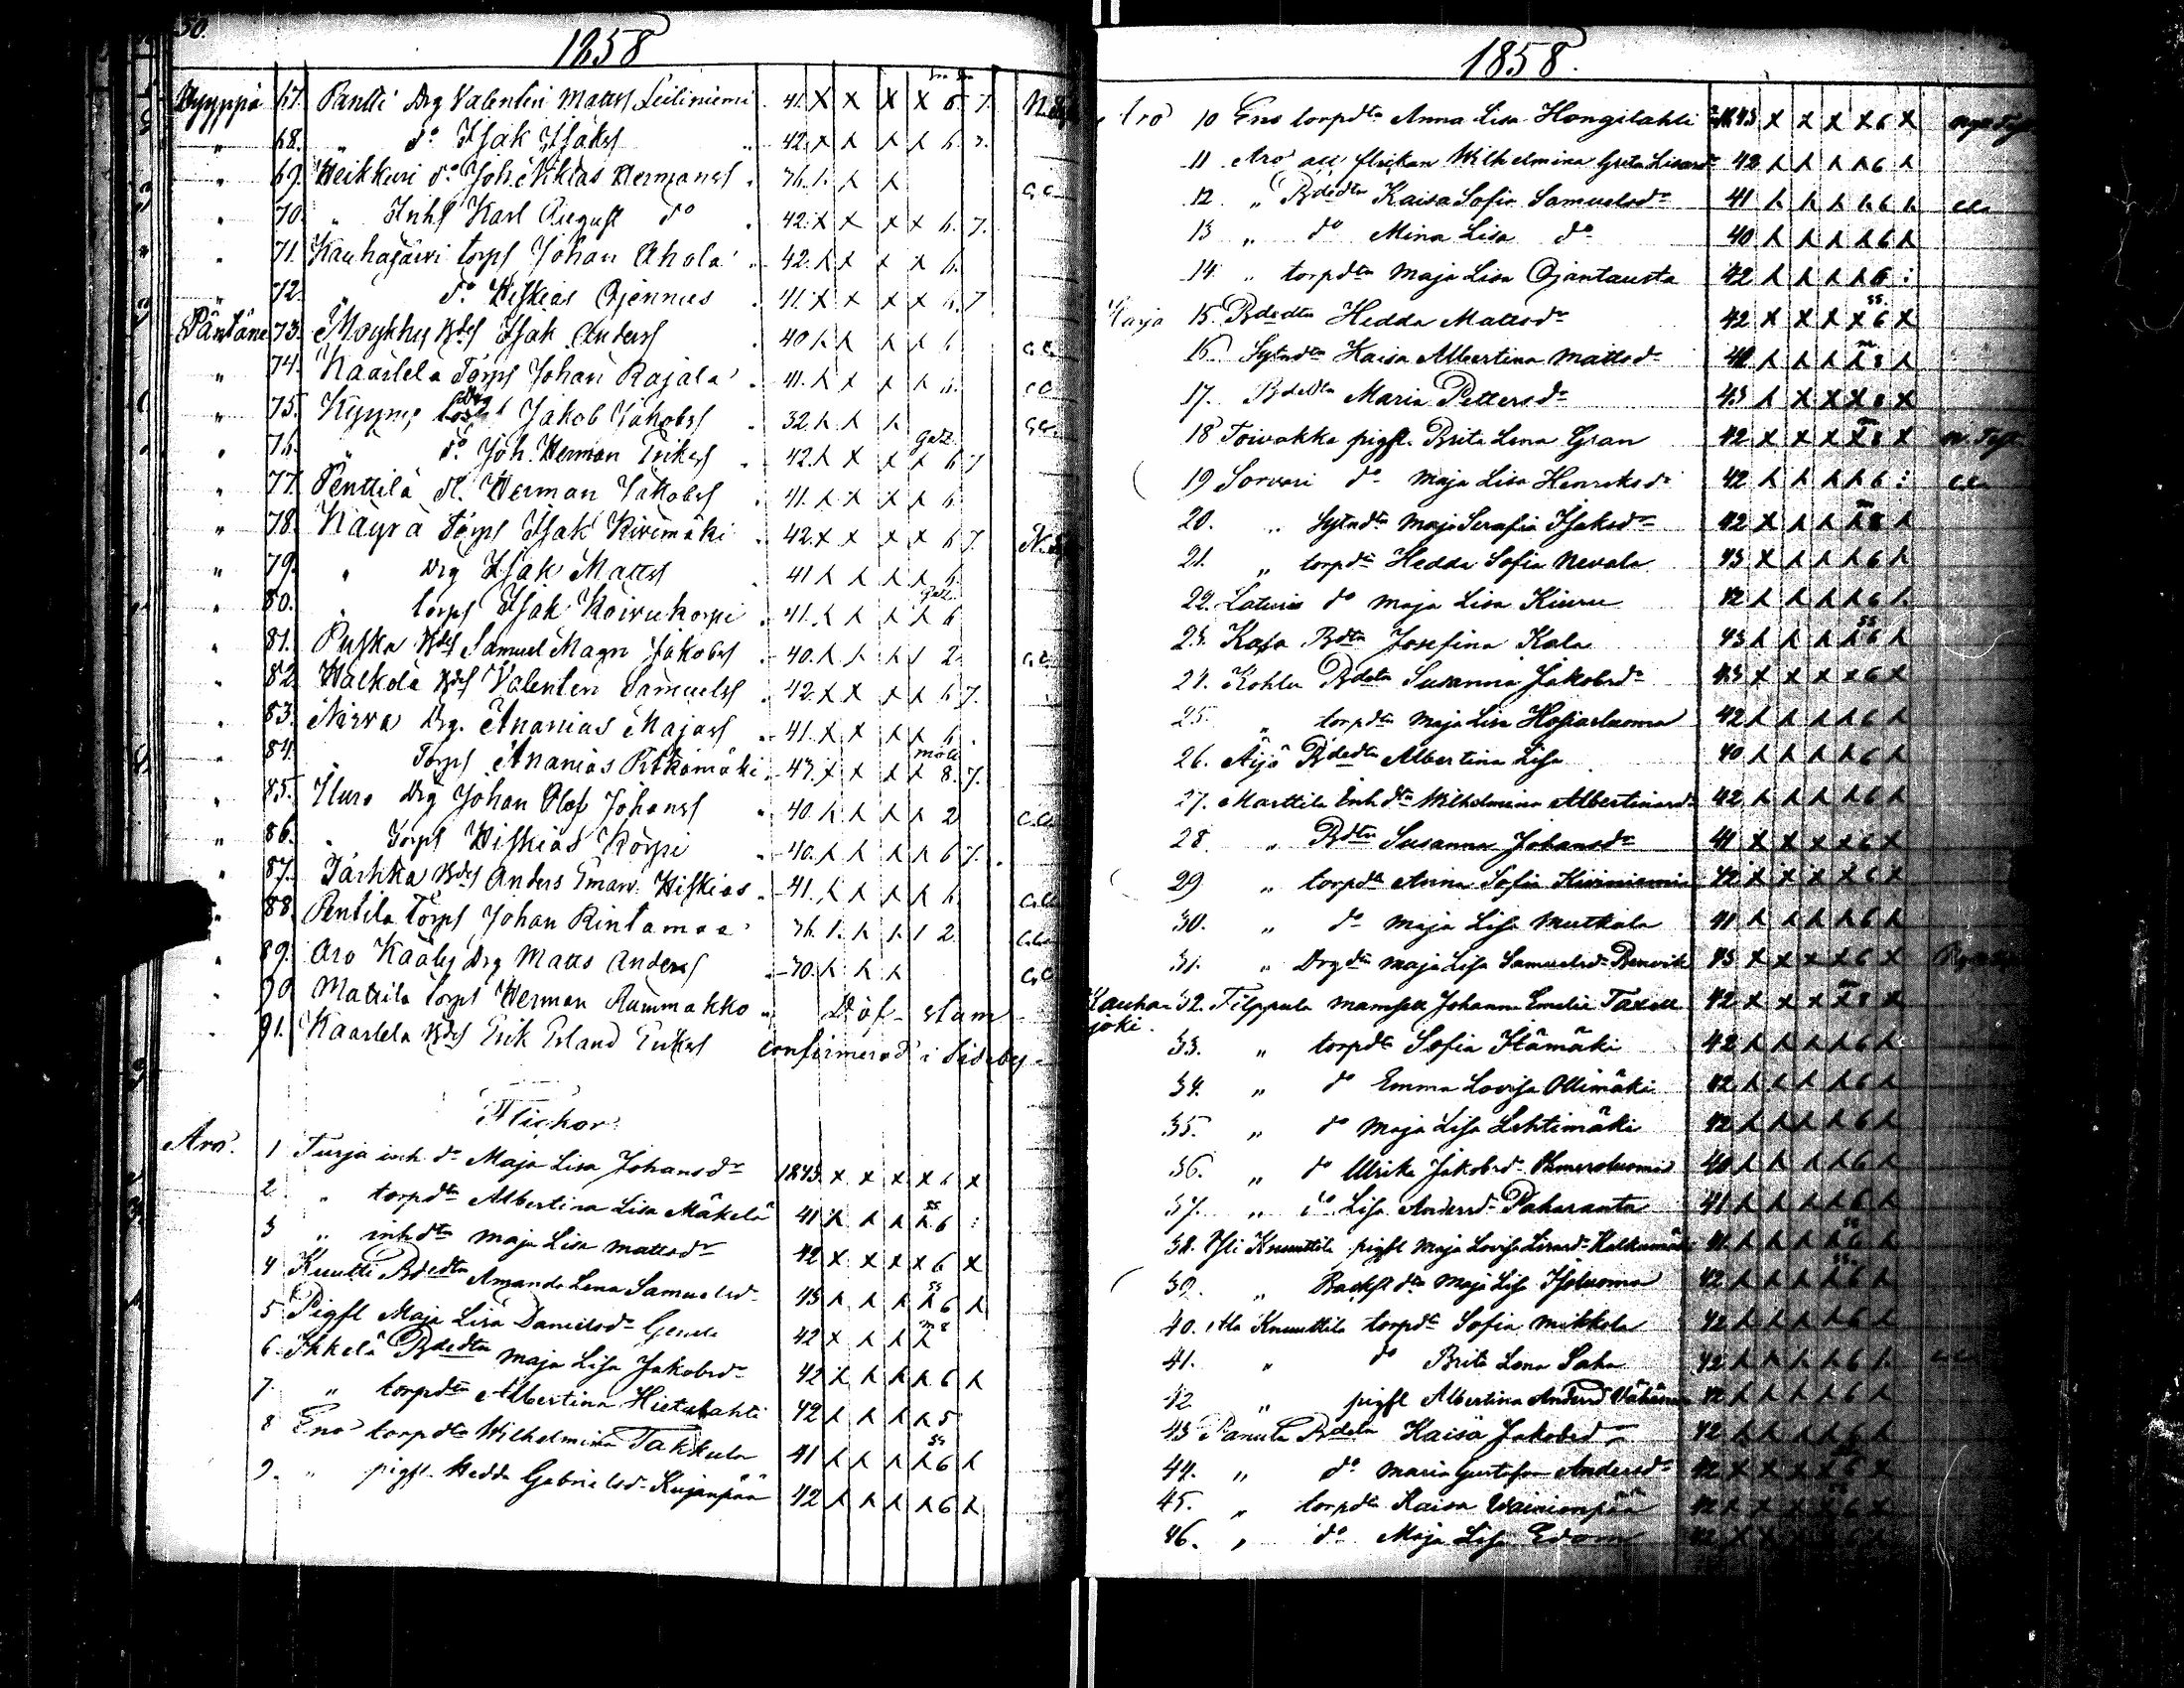 50.
1858
Hyyppä 67. Pantti Drg Valentin Mattss Leiliniemi 41. x x x x 6. 7.
" 68. " do Isak Isakss 42. x λ λ λ 6. 7.
" 69. Heikkuri do Joh. Niklas Hermanss 36. λ λ λ
" 70. " Inhs Karl August do 42. x x x x 6. 7.
" 71. Kauhajärvi torps Johan Ahola 42. λ x x x 6.
" 72. do Hiskias Ojennus 41. x x x x 6. 7
Päntäne 73. Moykky Bdes Isak Anderss 40 λ λ λ λ
" 74. Kaarlela Torps Johan Rajala 41. λ x x λ 6.
" 75. Kyyny Drg Jakob Jakobss 32. λ λ λ
" 76. " do Joh. Herman Erikss 42. λ x x x 6 7
" 77. Penttilä dl. Herman Jakobss 41. λ λ x λ 6
" 78. Käyrä Torps Isak Kivimäki 42. x x x x 6 7.
" 79. " Drg Isak Mattss 41 λ λ λ λ 6.
" 80. " torps Isak Koivukorpi 41. λ λ λ λ 6
81. Puska Bdes Samuel Magn Jakobss 40. λ λ λ λ 2
82. Walkola Bdes Valentin Samuelss 42. x x x x 6 7.
83. Nirva Drg. Ananias Majass 41. x x λ x 6
84. " Torps Ananias Pitkämäki 43. x x λ x 8. 7.
85. Iluro Drg Johan Olof Johanss 40. λ λ λ λ 2
86. " Torps Hiskias Korpi 40. λ λ λ λ 6 7.
87. Jaskka Bdes Anders Eman. Hiskias 41. λ λ λ λ 6.
88 Pentila Torps Johan Rintamaa 36. λ λ λ λ 2
89. Aro Kääly Drg Matts Anderss 30. λ λ λ
90 Mattila torps Herman Rummakko Döf-stum
91. Kaarlela Bdes Erik Erland Erikss confirmerad i Sideby
Flickor
Aro. 1 Turja inh. dr Maja Lisa Johansdr 1843. x x x x 6 x
2 " torpdtr Albertina Lisa Mäkelä 41 λ λ λ λ 6 :
3 " inhdtr Maja Lisa Mattsdr 42 x x x x 6 x
4 Kuutti Bdedtr Amanda Lena Samuelsd 43 λ λ λ λ 6 λ
5 Pigfl Maja Lisa Danielsdr 42 x λ λ λ
6 Ikkelä Bdedtr Maja Lisa Jakobsdr 42 λ λ λ λ 6 λ
7. " torpdtr Albertina Hietalahti 42 λ λ λ λ 5
8 Eno torpdtr Wilhelmina Takkula 41 λ λ λ λ 6 λ
9. " pigfl. Hedda Gabrielsd Kujanpää 42 λ λ λ λ 6 λ
1858.
Aro 10 Eno torpdtr Anna Lisa Hongilahti 43 x x x x 6 x
11 Aro au flickan Wilhelmina Greta Lisasd 42 λ λ λ λ 6 λ
12. " Bdedtr Kaisa Sofia Samuelsdr 41 λ λ λ λ 6 λ
13 " do Mina Lisa do 40 λ λ λ λ 6 λ
14. " torpdtr Maja Lisa Ojantausta 42 λ λ λ λ 6 :
Harja 15. Bdedtr Hedda Mattsdr 42 x x λ x 6 x
16. Sytndtr Kaisa Albertina Mattsdr 42 λ λ λ λ 8 λ
17. Bdedtr Maria Pettersdr 43 λ x x x 8 x
18 Toivakka pigfl. Brita Lena Gran 42 x x x x 8 x
19 Sorvari do Maja Lisa Henriksdr 42 λ λ λ λ 6 :
20. " Sytndtr Maja Serafia Isaksdr 42 x λ λ λ 8 λ
21. " torpdtr Hedda Sofia Nevala 43 x λ λ λ 6 λ
22. Laturi do Maja Lisa Kiuru 42 λ λ λ λ 6 λ
23. Kasa Bdtr Josefina Kala 43 λ λ λ λ 6 λ
24. Kohlu Bdetr Susanna Jakobsdr 43 x x x x 6 x
25. " torpdtr Maja Lisa Hosiasluoma 42 λ λ λ λ 6 λ
26. Äijö Bdedtr Albertina Lisa 40 λ λ λ λ 6 λ
27. Marttila Inhdtr Wilhelmina Albertinasd 42 λ λ λ λ 6 λ
28. " Bdtr Susanna Johansdr 41 x x x x 6 x
29 " torpdtr Anna Sofia Kiviniemi 42 x x x x 6 x
30. " do Maja Lisa Mutkala 41 λ λ λ λ 6 λ
31. " Drgdtr Maja Lisa Samuelsd Renvik 43 x x x x 6 x
Kauhajoki. 32. Filppula Mamsell Johanna Emelie Taxell 42 x x x x 8 x
33. " torpdtr Sofia Itämäki 42 λ λ λ λ 6 λ
34. " do Emma Lovisa Ollimäki 42 λ λ λ λ 6 λ
35. " do Maja Lisa Lehtimäki 42 λ λ λ λ 6 λ
36. " do Ulrika Jakobsd 40 λ λ λ λ 6 λ
37. " do Lisa Andersd Paharanta 41 λ λ λ λ 6 λ
38. Yli Knuuttila pigfl Maja Lovisa Lisasd 41. λ λ λ λ 6 λ
39. " Backst dtr Maja Lisa Isoluoma 42 λ λ λ λ 6 λ
40. Ala Knuuttila torpdtr Sofia Mikkola 42 λ λ λ λ 6 λ
41. " do Brita Lena Saha 42 λ λ λ λ 6 λ
42 " pigfl Albertina Andersd 42 λ λ λ λ 6 λ
43 Panula Bdetr Kaisa Jakobsdr 42 λ λ λ λ 6 λ
44. " do Maria Gustafva Andersdr 42 x x x x 6 x
45. " torpdtr Kaisa Wainionpää 42 λ x x x 6 x
46. " do Maja Lisa Edom 42 x x x